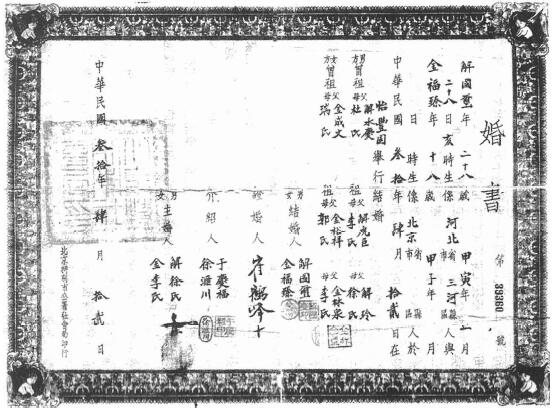 婚書
第 89360 號
解國璽年 二十八歲 甲寅年 二月
二十八日亥時生係 河北省 三河縣人與
金福臻年 十八歲 甲子年 月
日 時生係 北京市 區人於
中華民國 叁拾年 肆月 拾貳日在
怡豐園舉行結婚
男方曾祖父 解永慶 祖父 解虎臣 父 解玲
母 杜氏 母 李氏 母 徐氏
女方曾祖父 金成文 祖父 金裕祥 父 金林泉
母 瑞氏 母 郭氏 母 李氏
結婚人 男 解國璽
女 金福臻
證婚人 崔鶴峰 十
介紹人 于慶福
徐滙川
主婚人 男 解徐氏 十
女 金李氏
中華民國 叁拾年 肆 月 拾貳 日
北京特別市公署社會局印行